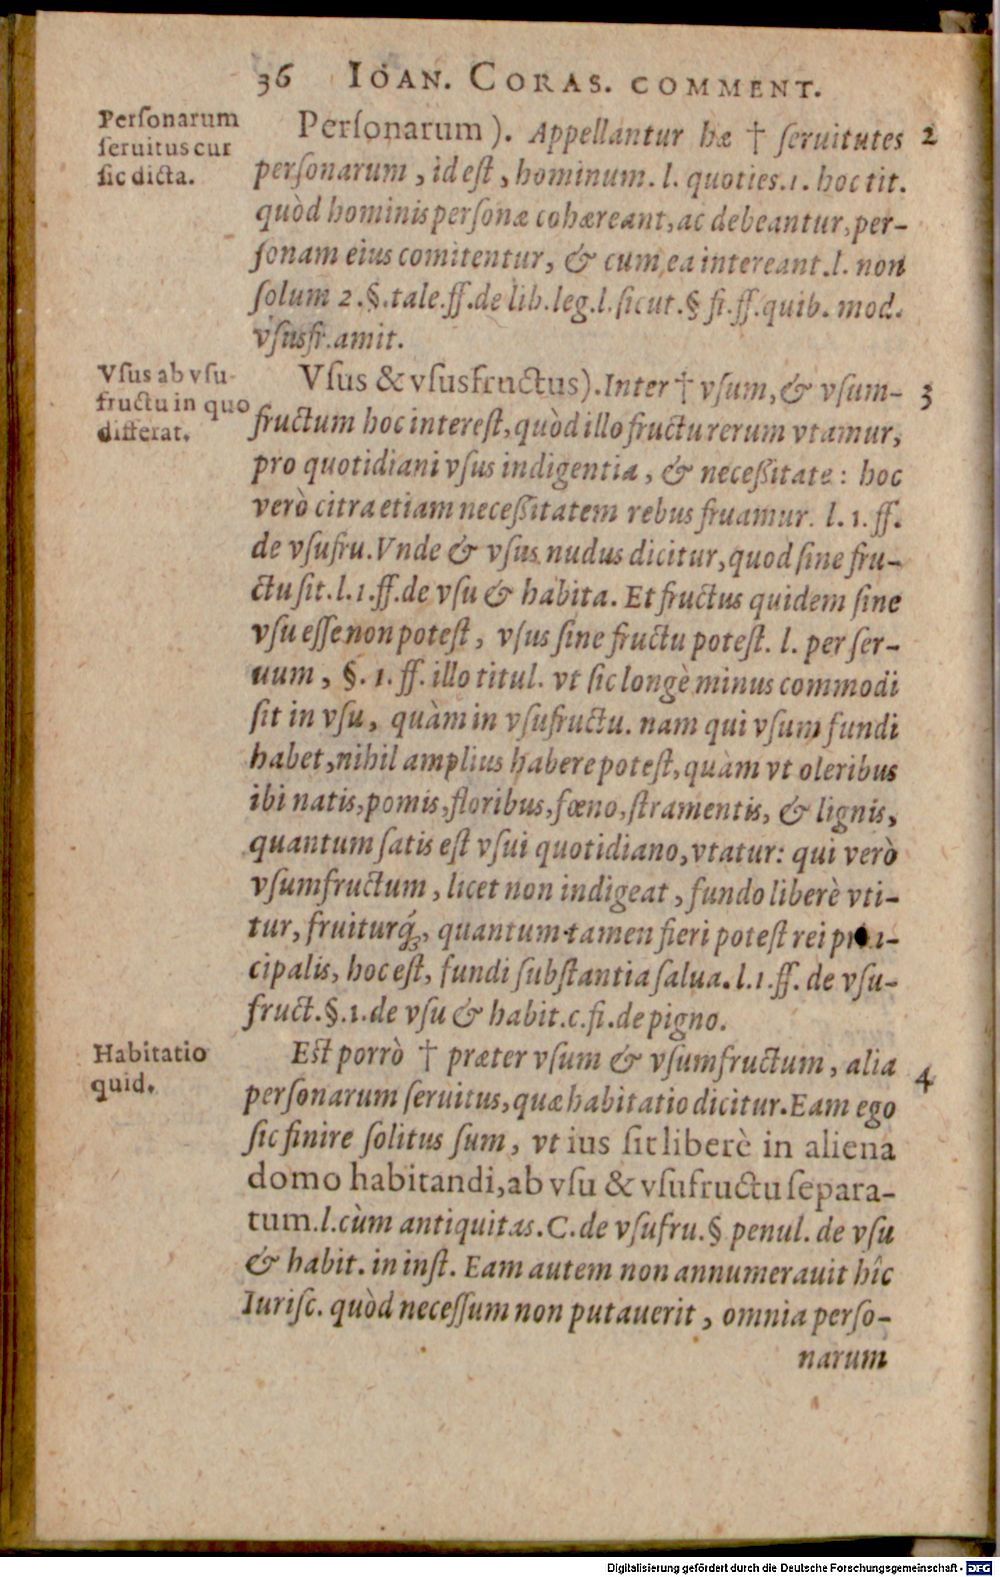 36 IOAN. CORAS. COMMENT.
Perſonarum
ſeruitus cur
ſic dicta.
Perſonarum). Appellantur hæ † ſeruitutes 2
perſonarum, id eſt, hominum. l. quoties. 1. hoc tit.
quòd hominis perſonæ cohæreant, ac debeantur, per-
ſonam eius comitentur, & cum ea intereant. l. non
ſolum 2. §. tale. ff. de lib. leg. l. ſicut. § fi. ff. quib. mod.
vſusfr. amit.
Vſus ab vſu-
fructu in quo
differat.
Vſus & vſusfructus). Inter † vſum, & vſum- 3
fructum hoc intereſt, quòd illo fructu rerum vtamur,
pro quotidiani vſus indigentia, & neceßitate: hoc
verò citra etiam neceßitatem rebus fruamur. l. 1. ff.
de vſufru. Vnde & vſus nudus dicitur, quod ſine fru-
ctu ſit. l. 1. ff. de vſu & habita. Et fructus quidem ſine
vſu eſſe non poteſt, vſus ſine fructu poteſt. l. per ſer-
uum, §. 1. ff. illo titul. vt ſic longè minus commodi
ſit in vſu, quàm in vſufructu. nam qui vſum fundi
habet, nihil amplius habere poteſt, quàm vt oleribus
ibi natis, pomis, floribus, fœno, ſtramentis, & lignis,
quantum ſatis eſt vſui quotidiano, vtatur: qui verò
vſumfructum, licet non indigeat, fundo liberè vti-
tur, fruiturq́;, quantum tamen fieri poteſt rei prin-
cipalis, hoc eſt, fundi ſubſtantia ſalua. l. 1. ff. de vſu-
fruct. §. 1. de vſu & habit. c. fi. de pigno.
Habitatio
quid.
Eſt porrò † præter vſum & vſumfructum, alia 4
perſonarum ſeruitus, quæ habitatio dicitur. Eam ego
ſic finire ſolitus ſum, vt ius ſit liberè in aliena
domo habitandi, ab vſu & vſufructu ſepara-
tum. l. cùm antiquitas. C. de vſufru. § penul. de vſu
& habit. in inſt. Eam autem non annumerauit hîc
Iuriſc. quòd neceſſum non putauerit, omnia perſo-
narum
Digitalisierung gefördert durch die Deutsche Forschungsgemeinschaft - DFG